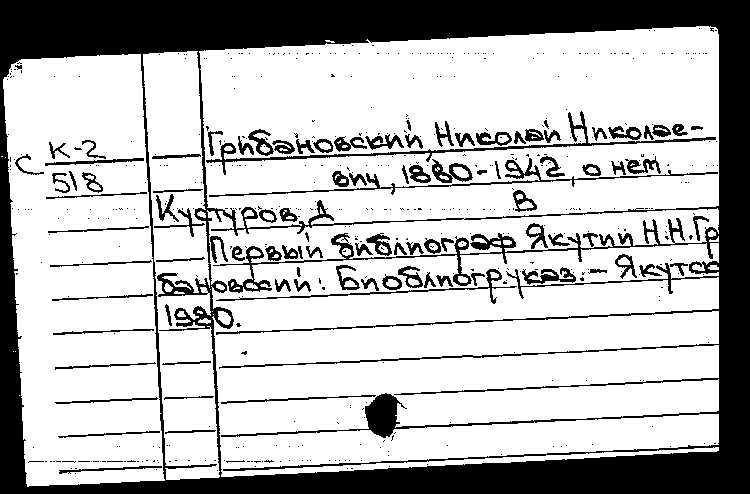 Грибановский, Николай Николае-
С К-2
518
вич, 1880-1942, о нем.
Кустуров, Д В
Первый библиограф Якутии Н.Н.Гр
бановский: Библиогр.указ. - Якутск
1980.